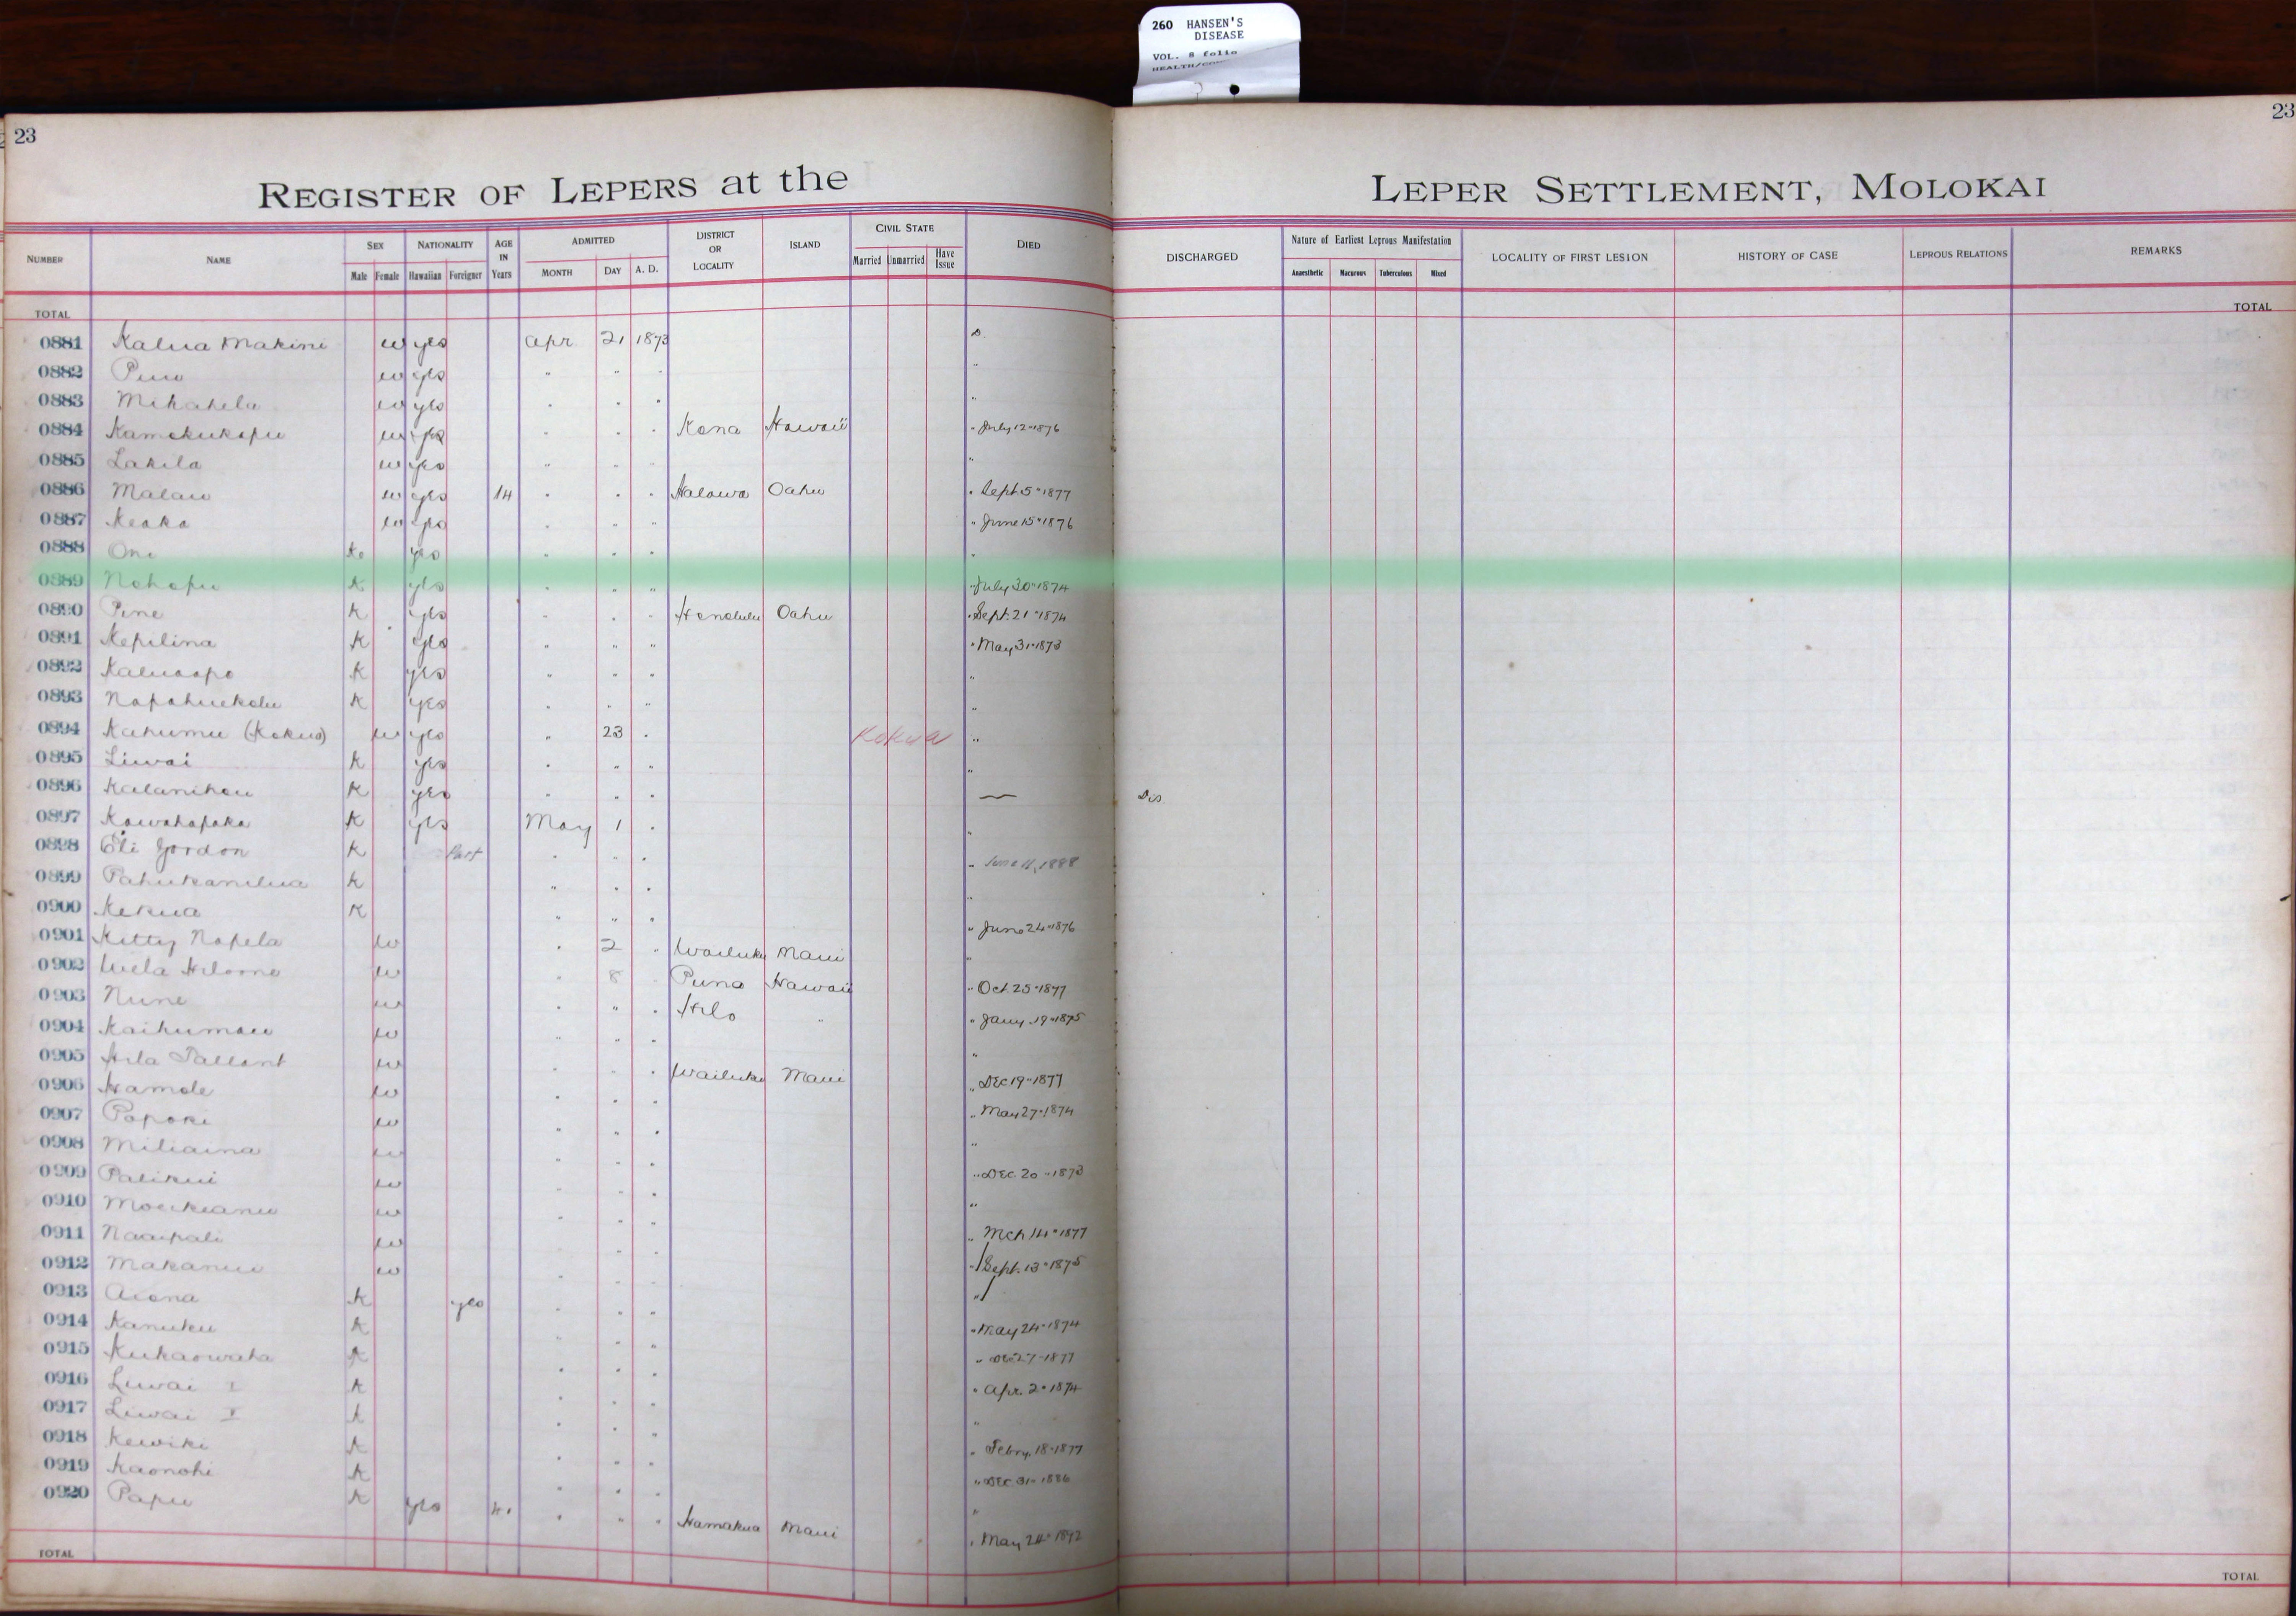 260 HANSEN'S
DISEASE
VOL. 8 folio
23
23
REGISTER OF LEPERS at the LEPER SETTLEMENT, MOLOKAI
NUMBER NAME SEX NATIONALITY AGE IN Years ADMITTED DISTRICT OR LOCALITY ISLAND CIVIL STATE DIED DISCHARGED Nature of Earliest Leprous Manifestation LOCALITY OF FIRST LESION HISTORY OF CASE LEPROUS RELATIONS REMARKS
Male Female Hawaiian Foreigner MONTH DAY A. D. Married Unmarried Have Issue Anaesthetic Macurous Tuberculous Mixed
TOTAL TOTAL
0881 Kalua Makini w yes Apr 21 1873 D.
0882 w yes " " "
0883 Mikahela w yes " " " "
0884 w yes " " " Kona Hawaii " July 12" 1876
0885 Lakila w yes " " " "
0886 Malau w yes 14 " " " Halawa Oahu " Sept. 5" 1877
0887 Keaka w yes " " " " June 15" 1876
0888 One K. yes " " " "
0889 Nohopu K yes " " " " July 30" 1874
0890 Pine K yes " " " Honolulu Oahu " Sept. 21" 1874
0891 Kepilina K yes " " " " May 31" 1873
0892 Kaluaapo K yes " " " "
0893 Napahuekolu K yes " " " "
0894 Kahumu (Kokua) w yes " 23 " Kokua "
0895 Liwai K yes " " " "
0896 Kalanihou K yes " " " — Dis
0897 Kawahapaka K yes May 1 " "
0898 Eli Gordon K Part " " " " June 11, 1888
0899 Pahukanilua K " " " "
0900 Kekua K " " " " June 24" 1876
0901 Kitty Napela w " 2 " Wailuku Maui "
0902 w " 8 Puna Hawaii " Oct. 25" 1877
0903 Nune w " " " Hilo " " Jany. 19" 1875
0904 Kaihumau w " " " "
0905 Hila Tallant w " " " Wailuku Maui " Dec 19" 1877
0906 Hamole w " " " " May 27" 1874
0907 Papoki w " " " "
0908 Miliaina w " " " " Dec. 20" 1873
0909 Palikui w " " " "
0910 w " " " " Mch 14" 1877
0911 Naaipali w " " " " Sept. 13" 1875
0912 Makanui w " " " "
0913 Aiona K yes " " " " May 24" 1874
0914 Kanuku K " " " " Dec 27" 1877
0915 Kukaowaha K " " " " Apr. 2" 1874
0916 Liwai I K " " " "
0917 Liwai K " " " " Febry. 18" 1877
0918 Kewiki K " " " " Dec. 31" 1886
0919 Kaonohi K " " " "
0920 Papu K yes " " " Hamakua Maui " May 24" 1892
TOTAL TOTAL